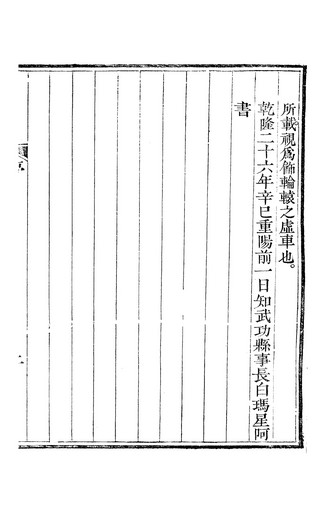 所載視爲飾輪轅之虛車也。
乾隆二十六年辛巳重陽前一日知武功縣事長白瑪星阿
書
序